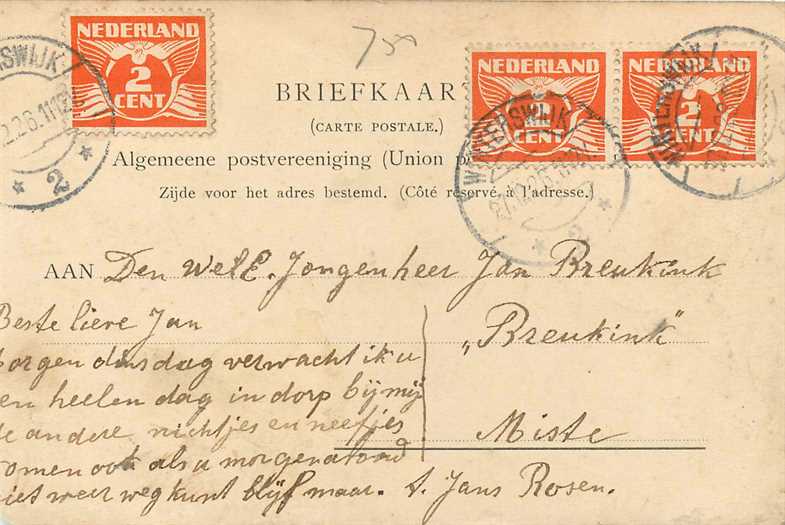 NEDERLAND
2
CENT
NEDERLAND
CENT
NEDERLAND
2
CENT
WINTERSWIJK
2
750
BRIEFKAAR
(CARTE POSTALE.)
Algemeene postvereeniging (Union p
Zijde voor het adres bestemd. (Côté réservé à l'adresse.)
AAN Den WelE. Jongenheer Jan Breukink
„Breukink"
Miste
Beste lieve Jan
orgen dinsdag verwacht ik u
en heelen dag in dorp bij mij
de andere nichtjes en neefjes
omen ook als u morgenavond
iet weer weg kunt blijf maar. t. Jans Rosen.